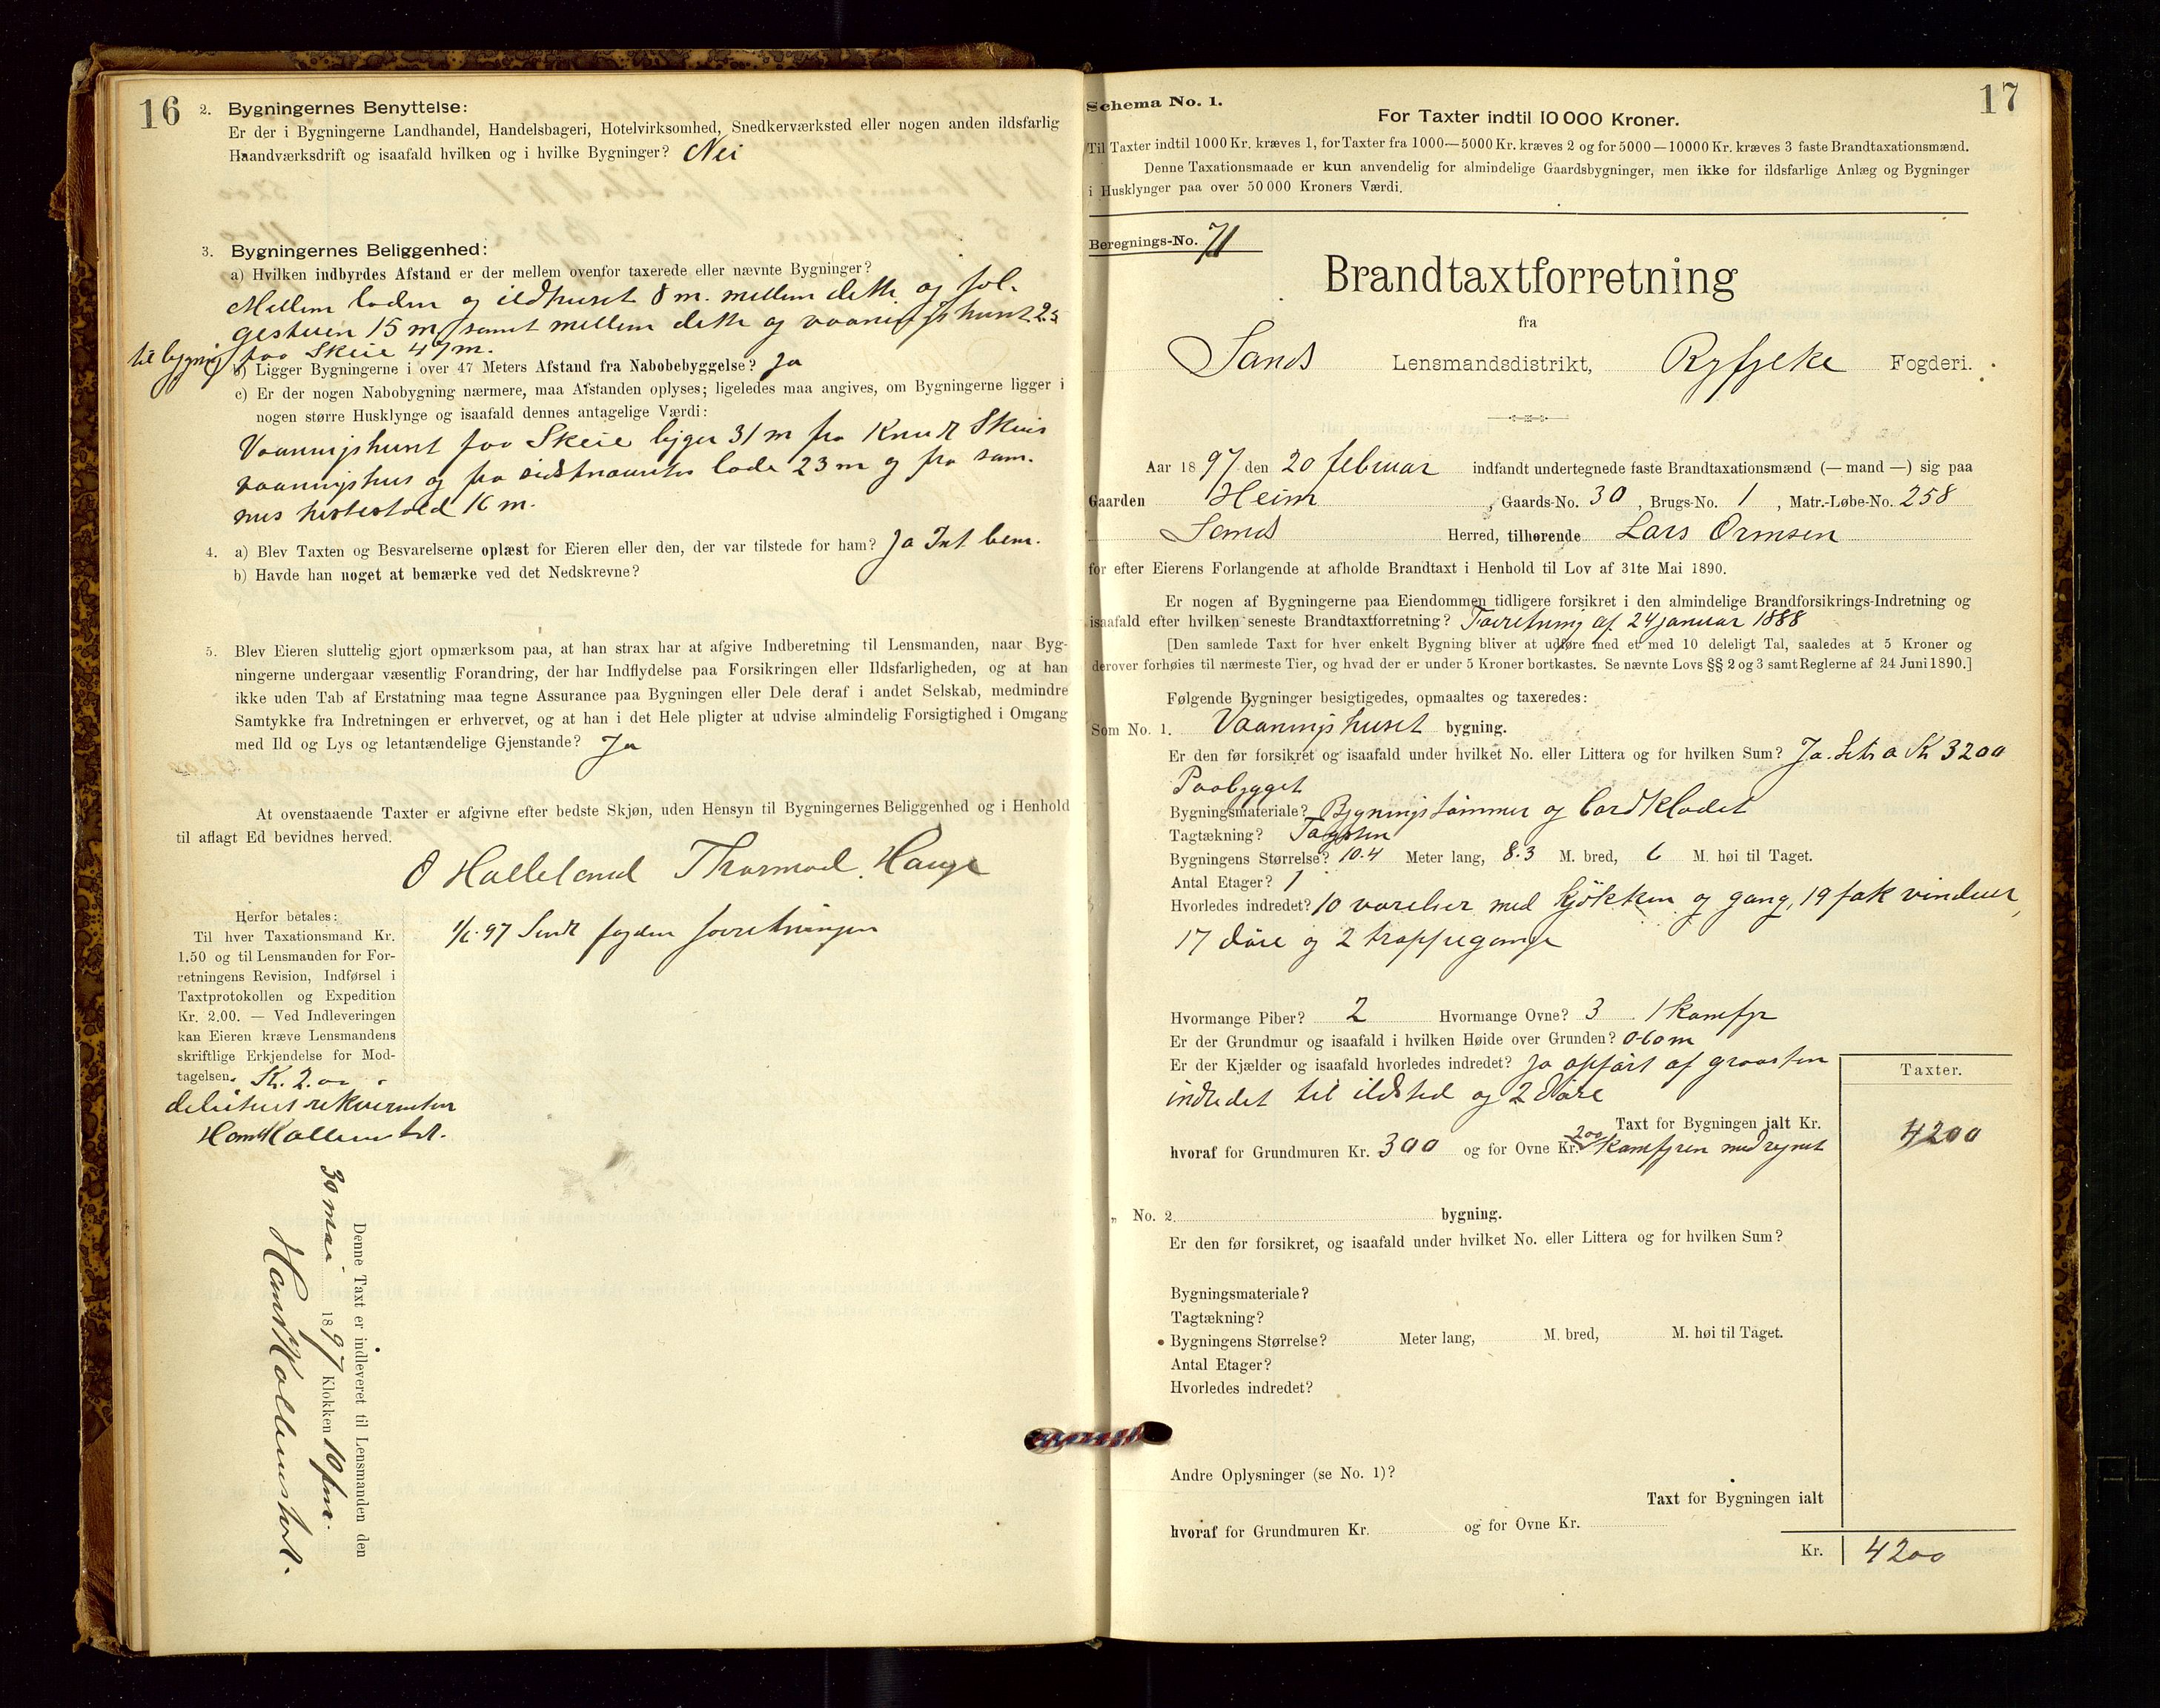 16
2. Bygningernes Benyttelse:
Er der i Bygningerne Landhandel, Handelsbageri, Hotelvirksomhed, Snedkerværksted eller nogen anden ildsfarlig
Haandværksdrift og isaafald hvilken og i hvilke Bygninger? Nei
3. Bygningernes Beliggenhed:
a) Hvilken indbyrdes Afstand er der mellem ovenfor taxerede eller nævnte Bygninger?
Mellem laden og ildhuset 8 m. mellem dette og fol-
gestuen 15 m, samt mellem dette og vaaningshuset 23
til bygning paa Skeie 47 m.
b) Ligger Bygningerne i over 47 Meters Afstand fra Nabobebyggelse? Ja
c) Er der nogen Nabobygning nærmere, maa Afstanden oplyses; ligeledes maa angives, om Bygningerne ligger i
nogen større Husklynge og isaafald dennes antagelige Værdi:
Vaaningshuset paa Skeie ligger 31 m fra Knud Skeies
vaaningshus og fra sidstnævntes lade 23 m og fra sam-
mes hestestald 16 m.
4. a) Blev Taxten og Besvarelserne oplæst for Eieren eller den, der var tilstede for ham? Ja Int. bem.
b) Havde han noget at bemærke ved det Nedskrevne?
5. Blev Eieren sluttelig gjort opmærksom paa, at han strax har at afgive Indberetning til Lensmanden, naar Byg-
ningerne undergaar væsentlig Forandring, der har Indflydelse paa Forsikringen eller Ildsfarligheden, og at han
ikke uden Tab af Erstatning maa tegne Assurance paa Bygningen eller Dele deraf i andet Selskab, medmindre
Samtykke fra Indretningen er erhvervet, og at han i det Hele pligter at udvise almindelig Forsigtighed i Omgang
med Ild og Lys og letantændelige Gjenstande? Ja
At ovenstaaende Taxter er afgivne efter bedste Skjøn, uden Hensyn til Bygningernes Beliggenhed og i Henhold
til aflagt Ed bevidnes herved.
O Halleland Thormod Hauge
Herfor betales:
Til hver Taxationsmand Kr.
1.50 og til Lensmanden for For-
retningens Revision, Indførsel i
Taxtprotokollen og Expedition
Kr. 2.00. — Ved Indleveringen
kan Eieren kræve Lensmandens
skriftlige Erkjendelse for Mod-
tagelsen. Kr. 2.00
debiteret rekvirenten
97 Sendt fogden forretningen
Denne Taxt er indleveret til Lensmanden den
30 mai 1897 Klokken 10 fm.
17
Schema No. 1.
For Taxter indtil 10 000 Kroner.
Til Taxter indtil 1000 Kr. kræves 1, for Taxter fra 1000—5000 Kr. kræves 2 og for 5000—10000 Kr. kræves 3 faste Brandtaxationsmænd.
Denne Taxationsmaade er kun anvendelig for almindelige Gaardsbygninger, men ikke for ildsfarlige Anlæg og Bygninger
i Husklynger paa over 50 000 Kroners Værdi.
Beregnings-No. 71
Brandtaxtforretning
fra
Sands Lensmandsdistrikt, Ryfylke Fogderi.
Aar 1897 den 20 februar indfandt undertegnede faste Brandtaxationsmænd (— mand —) sig paa
Gaarden Heim, Gaards-No. 30, Brugs-No. 1, Matr.-Løbe-No. 258
Sands Herred, tilhørende Lars Ormsen
for efter Eierens Forlangende at afholde Brandtaxt i Henhold til Lov af 31te Mai 1890.
Er nogen af Bygningerne paa Eiendommen tidligere forsikret i den almindelige Brandforsikrings-Indretning og
isaafald efter hvilken seneste Brandtaxtforretning? Forretning af 24 januar 1888
[Den samlede Taxt for hver enkelt Bygning bliver at udføre med et med 10 deleligt Tal, saaledes at 5 Kroner og
derover forhøies til nærmeste Tier, og hvad der er under 5 Kroner bortkastes. Se nævnte Lovs §§ 2 og 3 samt Reglerne af 24 Juni 1890.]
Følgende Bygninger besigtigedes, opmaaltes og taxeredes:
Som No. 1. Vaaningshuset bygning.
Er den før forsikret og isaafald under hvilket No. eller Littera og for hvilken Sum? Ja. Litr a Kr 3200
Paabygget
Bygningsmateriale? Bygningstømmer og bordklædet
Tagtækning? Tagsten
Bygningens Størrelse? 10.4 Meter lang, 8.3 M. bred, 6 M. høi til Taget.
Antal Etager? 1
Hvorledes indredet? 10 værelser med kjøkken og gang, 19 fak vinduer,
17 døre og 2 trappegange
Hvormange Piber? 2 Hvormange Ovne? 3 1 Komfyr
Er der Grundmur og isaafald i hvilken Høide over Grunden? 0.60 m
Er der Kjælder og isaafald hvorledes indredet? Ja opført af graasten
indredet til ildsted og 2 døre
Taxter.
Taxt for Bygningen ialt Kr. 4200
hvoraf for Grundmuren Kr. 300 og for Ovne Kr. 200 Komfyren medregnet
„ No. 2 bygning.
Er den før forsikret, og isaafald under hvilket No. eller Littera og for hvilken Sum?
Bygningsmateriale?
Tagtækning?
Bygningens Størrelse? Meter lang, M. bred, M. høi til Taget.
Antal Etager?
Hvorledes indredet?
Andre Oplysninger (se No. 1)?
Taxt for Bygningen ialt
hvoraf for Grundmuren Kr. og for Ovne Kr.
Kr. 4200